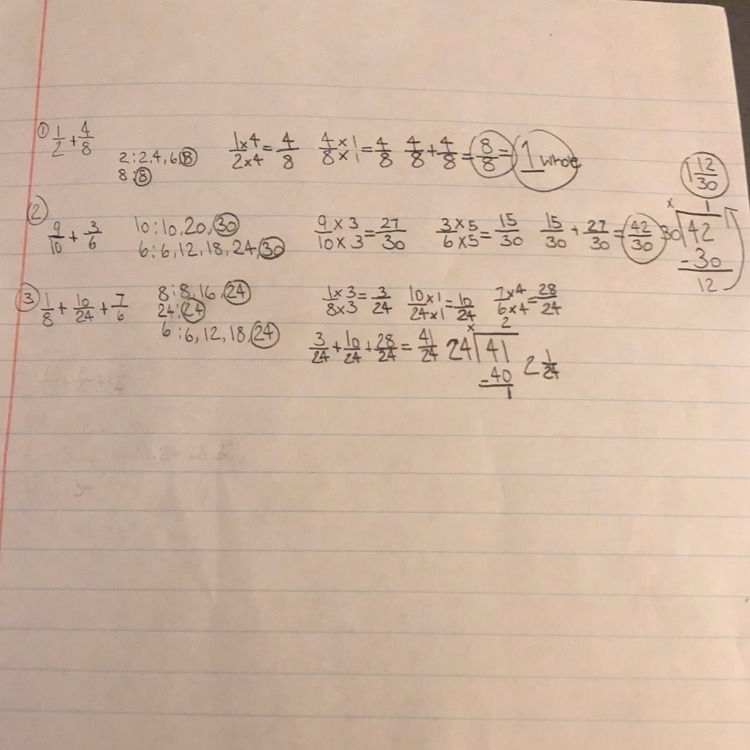 ① 1/2 + 4/8
2: 2, 4, 6, 8
8: 8
1x4/2x4 = 4/8 4x1/8x1 = 4/8 4/8 + 4/8 = 8/8 = 1 whole
② 9/10 + 3/6
10: 10, 20, 30
6: 6, 12, 18, 24, 30
9x3/10x3 = 27/30 3x5/6x5 = 15/30 15/30 + 27/30 = 42/30
1 12/30
x 1
30)42
-30
12
③ 1/8 + 10/24 + 7/6
8: 8, 16, 24
24: 24
6: 6, 12, 18, 24
1x3/8x3 = 3/24 10x1/24x1 = 10/24 7x4/6x4 = 28/24
3/24 + 10/24 + 28/24 = 41/24
x 2
24)41
-40
1
2 1/24